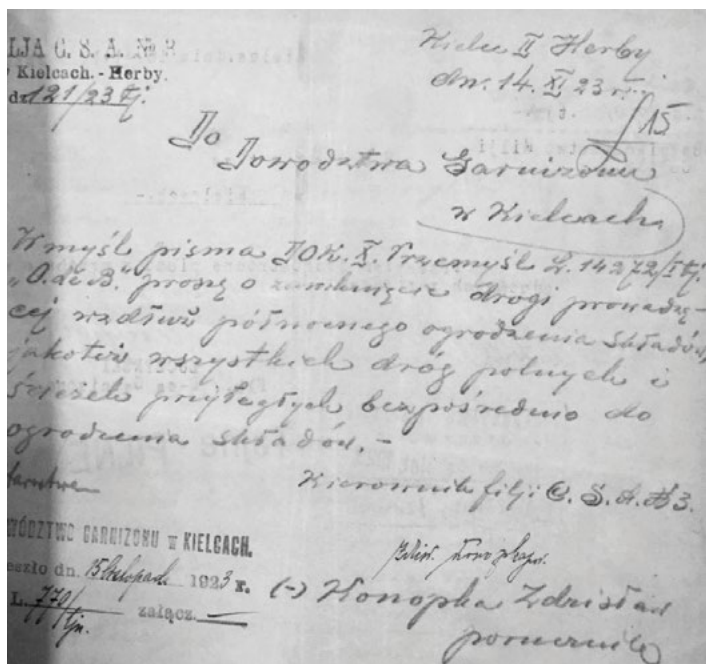 LJA C. S. A. № 3
Kielcach.-Herby.
dz. 121/23 tj.
Kielce II Herby
dn. 14. XI 23 r.
15
Do
Dowództwa Garnizonu
w Kielcach
W myśl pisma DOK. X. Przemyśl L. 14272/I tj.
"O. de B." proszę o zamknięcie drogi prowadzą-
cej wzdłuż północnego ogrodzenia składów,
jakoteż wszystkich dróg polnych i
ścieżek przyległych bezpośrednio do
ogrodzenia składów.-
Kierownik filji C. S. A. № 3.
WÓDZTWO GARNIZONU w KIELCACH.
eszło dn. 15 listopada 1923 r.
L. 770/tjn. załącz. —
(-) Konopka Zdzisław
porucznik